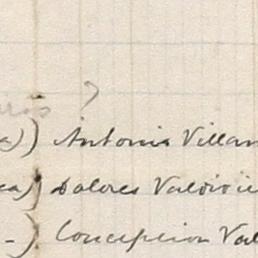 ?
a)) Antonia Villan
ca) Dolores Valdivie
-) Concepcion Val